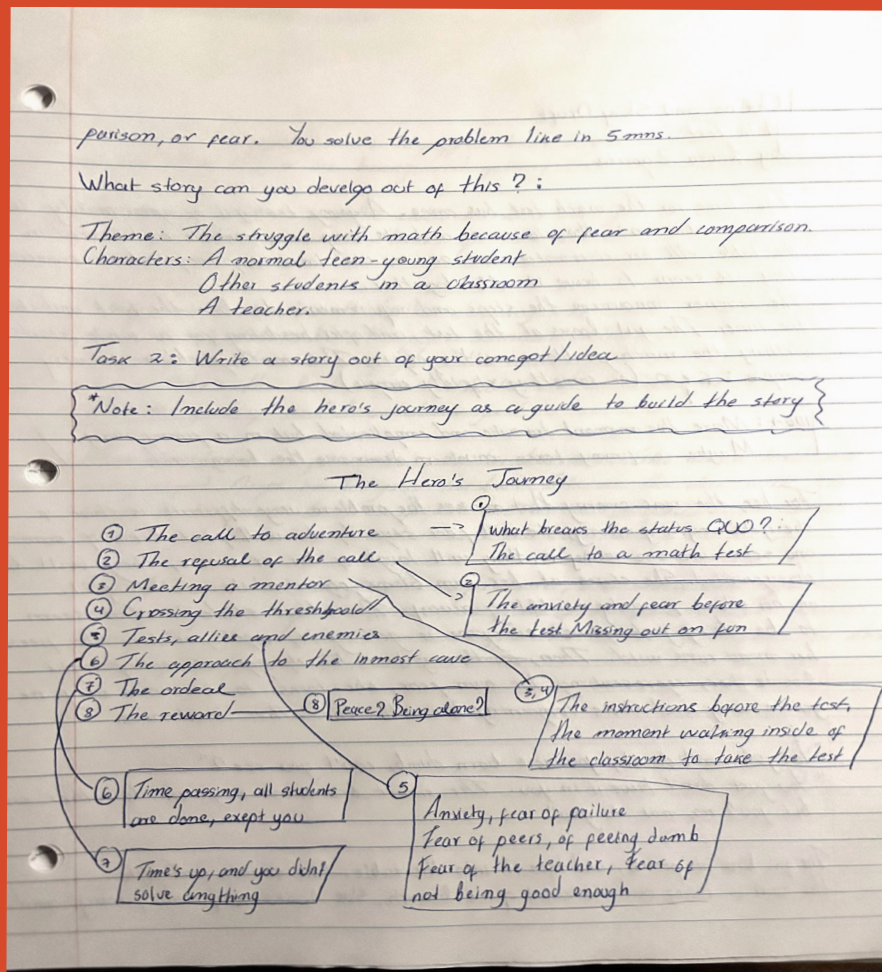 parison, or fear. You solve the problem like in 5 mns.
What story can you develgo out of this? :
Theme: The struggle with math because of fear and comparison.
Characters: A normal teen-young student
Other students in a classroom
A teacher.
Task 2: Write a story out of your concept/idea
*Note: Include the hero's journey as a guide to build the story
The Hero's Journey
① The call to adventure —>
② The refusal of the call
③ Meeting a mentor
④ Crossing the threshpold
⑤ Tests, allies and enemies
⑥ The approach to the inmost cave
⑦ The ordeal
⑧ The reward
①
What breaks the status QUO? :
The call to a math test
②
The anxiety and fear before
the test Missing out on fun
3,4
The instructions before the test,
the moment walking inside of
the classroom to take the test
⑧ Peace? Being alone?
⑤
Anxiety, fear of failure
Fear of peers, of feeling dumb
Fear of the teacher, Fear of
not being good enough
⑥ Time passing, all students
are done, exept you
⑦ Time's up, and you didn't
solve anything